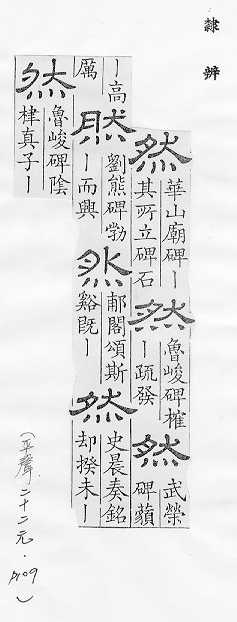 隸辨
然 華山廟碑｜
其所立碑石
然 魯峻碑榷
｜疏發
然 武榮
碑蘋
｜高
厲
然 劉熊碑勃
｜而興
然 郙閣頌斯
谿既｜
然 史晨奏銘
却揆未｜
然 魯峻碑陰
真子｜
（平聲 二十二元．P109）